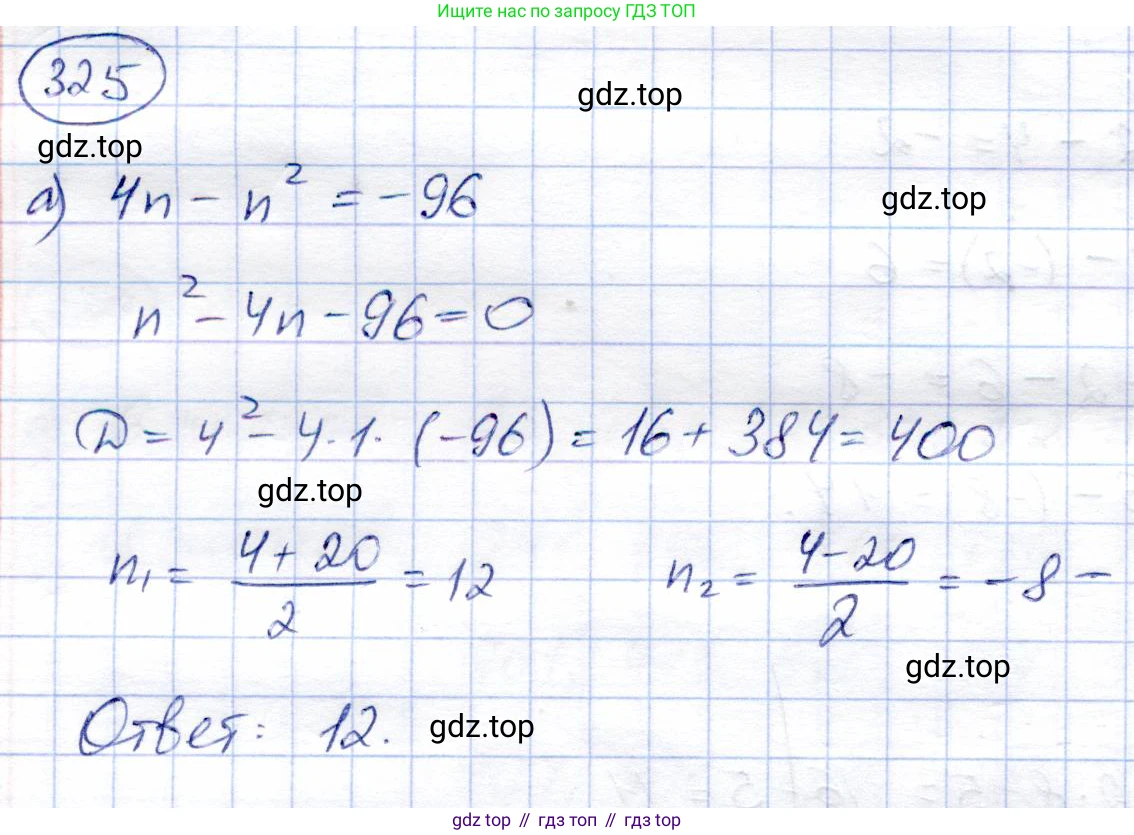 Ищите нас по запросу ГДЗ ТОП
325
gdz.top
gdz.top
а) 4n - n² = -96
gdz.top
n² - 4n - 96 = 0
D = 4² - 4·1·(-96) = 16 + 384 = 400
gdz.top
n₁ = (4 + 20)/2 = 12 n₂ = (4 - 20)/2 = -8 -
gdz.top
Ответ: 12.
gdz.top
gdz top // гдз топ // гдз top